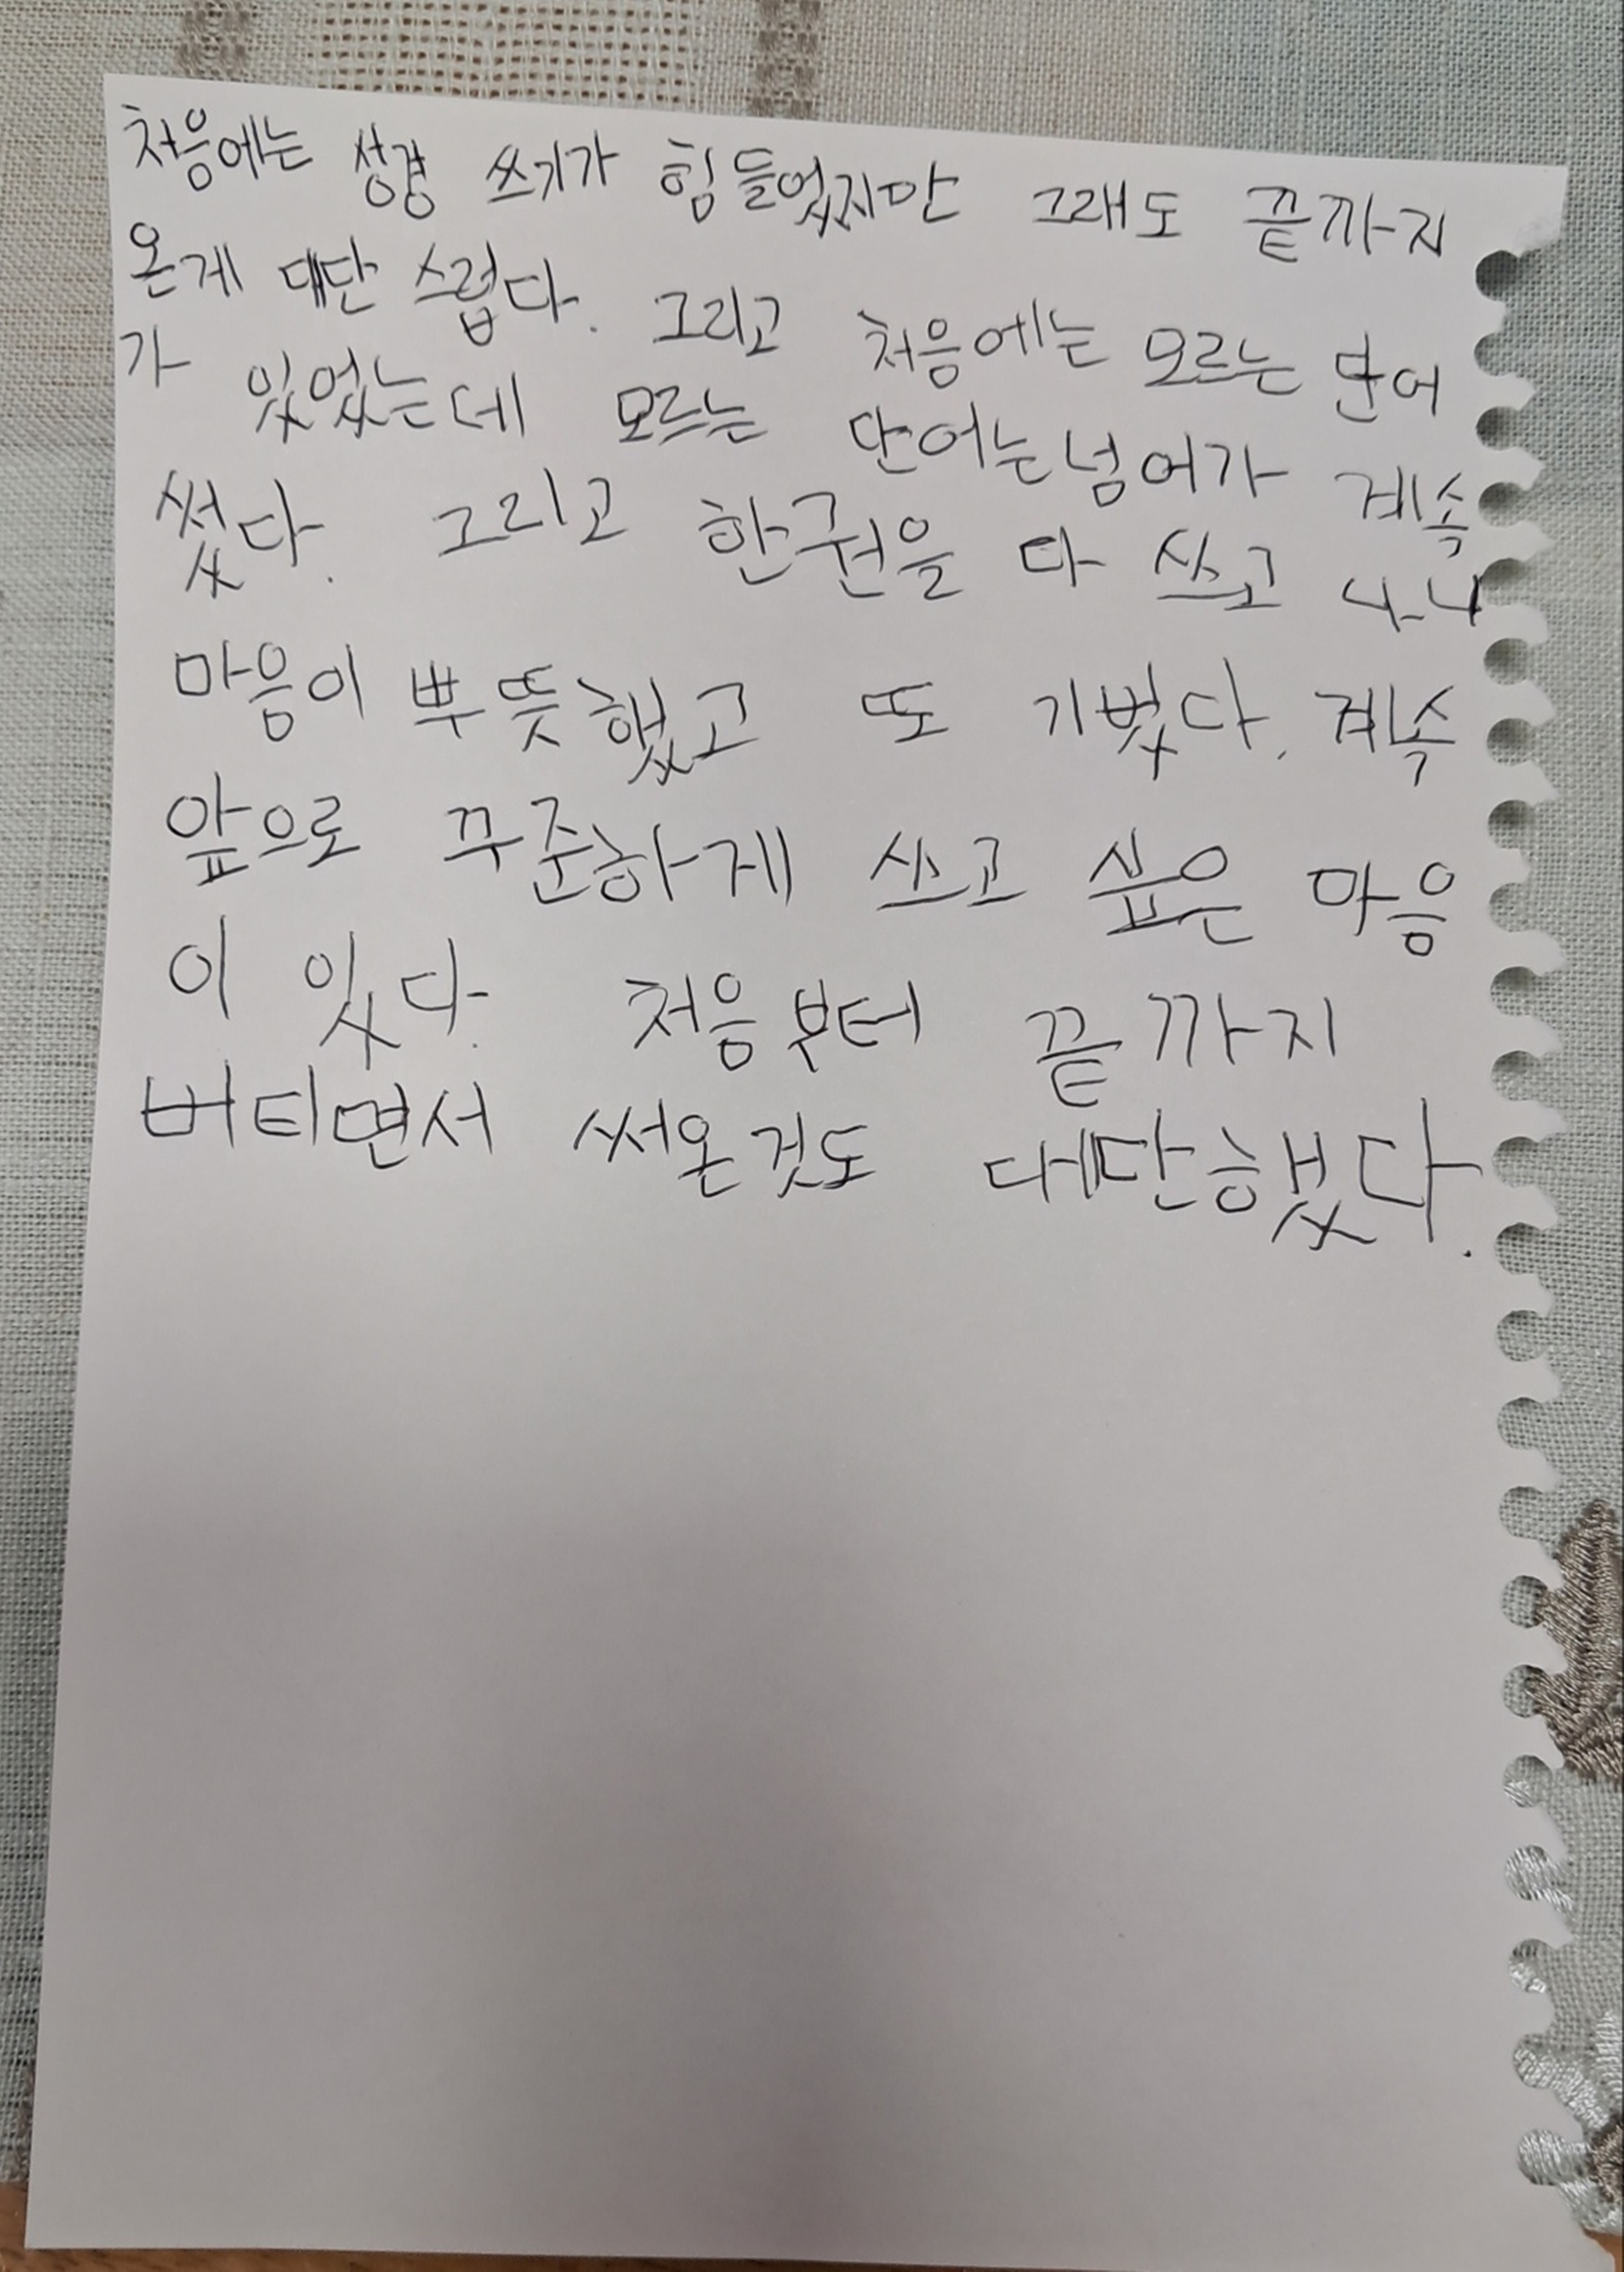 처음에는 성경 쓰기가 힘들었지만 그래도 끝까지
온게 대단 스럽다. 그리고 처음에는 모르는 단어
가 있었는데 모르는 단어는 넘어가 계속
썼다. 그리고 한권을 다 쓰고 나니
마음이 뿌뜻했고 또 기뻤다. 계속
앞으로 꾸준하게 쓰고 싶은 마음
이 있다. 처음부터 끝까지
버티면서 써온것도 대단했다.